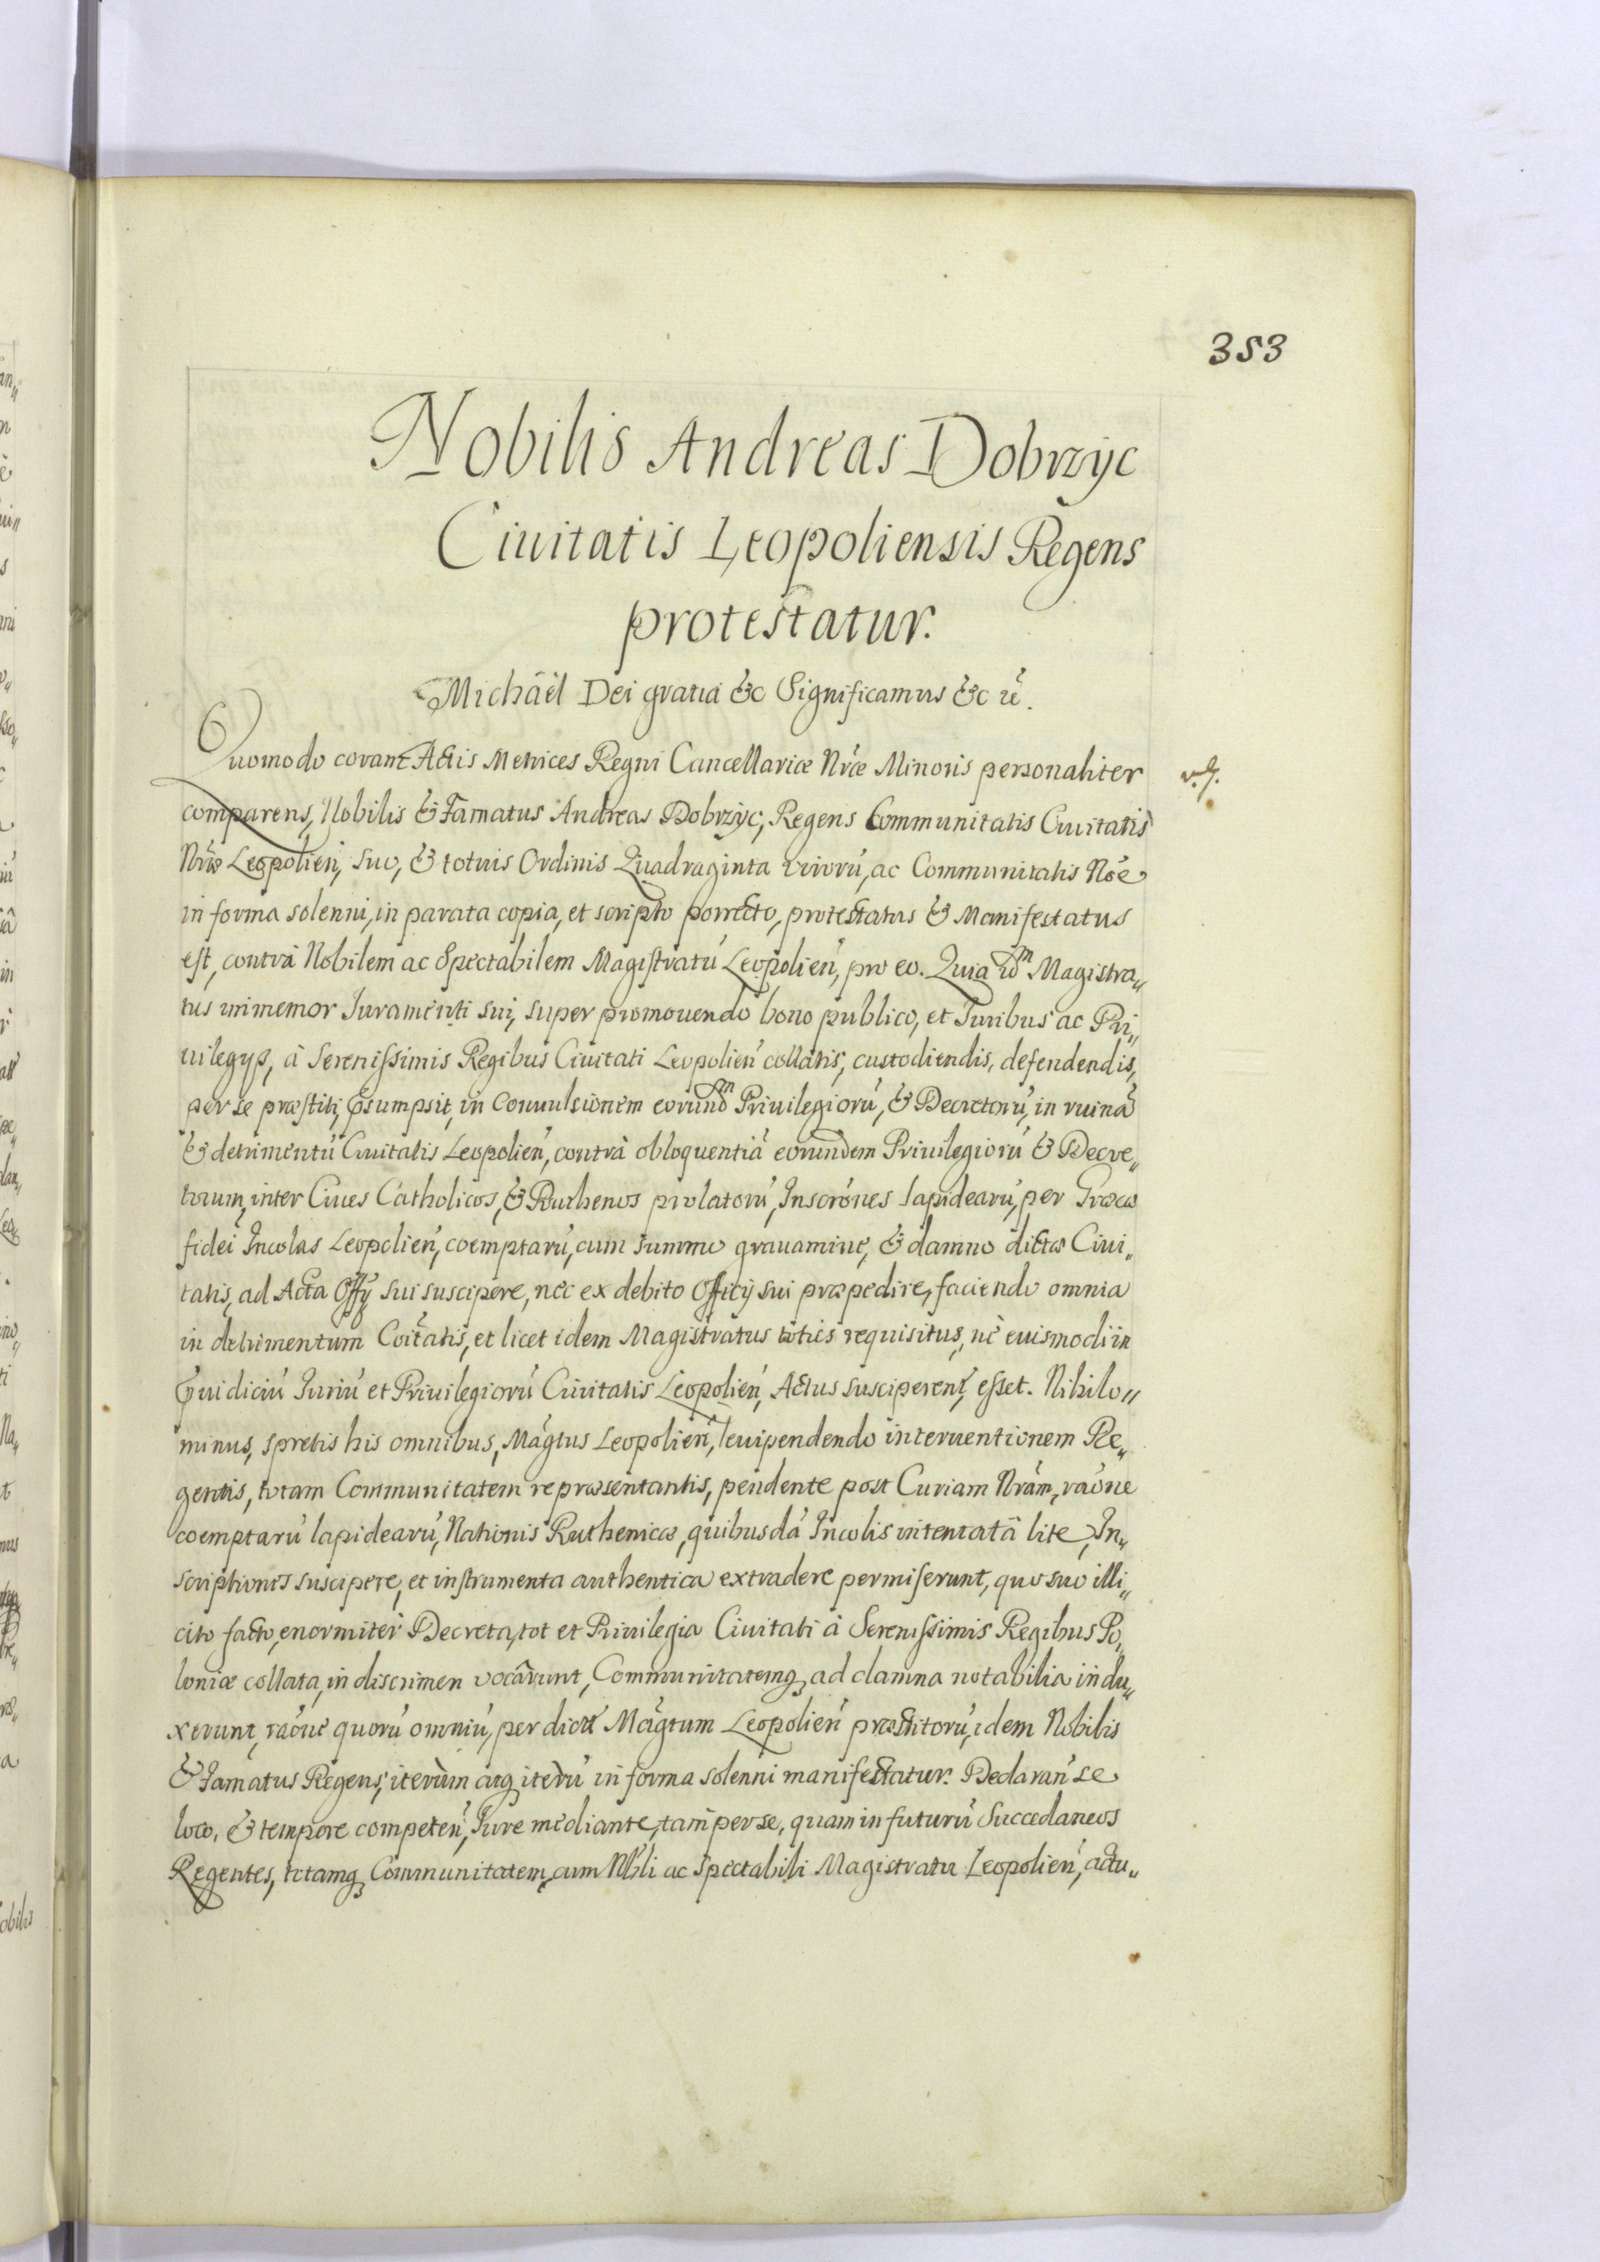 353
Nobilis Andreas Dobrzyc
Ciuitatis Leopoliensis Regens
protestatur.
Michäel Dei gratiá &c Significamus &c
Quomodo coram Actis Metrices Regni Cancellariæ Nrǽ Minoris personaliter
comparens, Nobilis & Famatus Andreas Dobrzyc, Regens Communitatis Ciuitatis
Nrǽ Leopolień, suo, & totuis Ordinis Quadraginta virorú, ac Communitatis Nóe
in forma solenni, in parata copia, et scripto porrecto, protestatus & Manifestatus
est, contrà Nobilem ac Spectabilem Magistratú Leopolień, pro eo. Quia idm Magistra„
tus immemor Juramenti sui, super promouendo bono publico, et Juribus ac Pri„
uilegys, à Serenissimis Regibus Ciuitati Leopolień collatis, custodiendis, defendendis,
per se præstiti, psumpsit, in Conuulsionem eorundm Priuilegiorú, & Decretorú, in ruiná
& detrimentú Ciuitatis Leopolień, contrà obloquentiá eorundem Priuilegiorú & Decre„
torum, inter Ciues Catholicos, & Ruthenos prolatorú, Inscrónes lapidearú, per Græcæ
fidei Incolas Leopolień, coemptarú, cum summo grauamine, & damno dictæ Ciui„
tatis, ad Acta Offy sui suscipere, nec ex debito Officij sui præpedire, faciendo omnia
in detrimentum Coitátis, et licet idem Magistratus toties requisitus, né euismodi in
pjuidiciú Juriú et Priuilegiorú Ciuitatis Leopolień, Actus susciperent, esset. Nihilo„
minus, spretis his omnibus, Mágtus Leopolień, leuipendendo interuentionem Re„
gentis, totam Communitatem repræsentantis, pendente post Curiam Nrám, raóne
coemptarú lapidearú, Nationis Ruthenicæ, quibusdá Incolis intentatâ lite, In„
scriptiones suscipere, et instrumenta authentica extradere permiserunt, quo suo illi„
cito facto, enormiter Decreta, tot et Priuilegia Ciuitati à Serenissimis Regibus Po„
loniæ collata, in discrimen vocârunt, Communitatemq ad damna notabilia indu„
xerunt, raóne quorú omniú, per dictú Mágtum Leopolień præstitorú, idem Nobilis
& Famatus Regens, iterùm atq iterú in forma solenni manifestatur. Declarań se
loco, & tempore competeń, Jure mediante, tam per se, quam in futurú Succedaneos
Regentes, totamq Communitatem, cum Nbli ac Spectabili Magistratu Leopolień, actu„